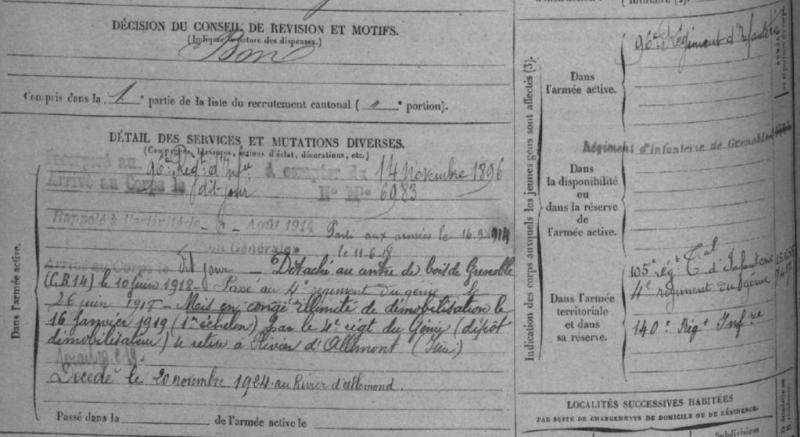 DÉCISION DU CONSEIL DE REVISION ET MOTIFS.
(Indiquer la nature des dispenses.)
Bon
Compris dans la 1e partie de la liste du recrutement cantonal ( portion).
DÉTAIL DES SERVICES ET MUTATIONS DIVERSES.
(Campagnes, blessures, actions d'éclat, décorations, etc.)
96e Régt d'Infie à compter du 14 Novembre 1896
Arrivé au Corps le dit jour No Mle 6983
Rappelé à l'activité le Août 1914
Parti aux armées le 16.9.1914
Générale le 11.6.18
Arrivé au Corps le dit jour Détaché au centre de bois de Grenoble
(C.B.14) le 10 juin 1918 - Passé au 4e regiment du génie le
26 juin 1918 - Mis en congé illimité de démobilisation le
16 Janvier 1919 (1er échelon) par le 4e régt du Génie (dépôt
démobilisateur) se retire à Rivier d'Allemont (Isère)
Décédé le 20 novembre 1924 au Rivier d'allemond.
Passé dans la de l'armée active le
Dans l'armée active.
Indication des corps auxquels les jeunes gens sont affectés (3).
Dans
l'armée active.
96e Régiment d'Infanterie
Dans
la disponibilité
ou
dans la réserve
de
l'armée active.
Régiment d'Infanterie de Grenoble
Dans l'armée
territoriale
et dans
sa réserve.
105e régt Tal d'Infanterie
4e régiment du Génie
140e Régt Infre
LOCALITÉS SUCCESSIVES HABITÉES
PAR SUITE DE CHANGEMENTS DE DOMICILE OU DE RÉSIDENCE.
Subdivisions